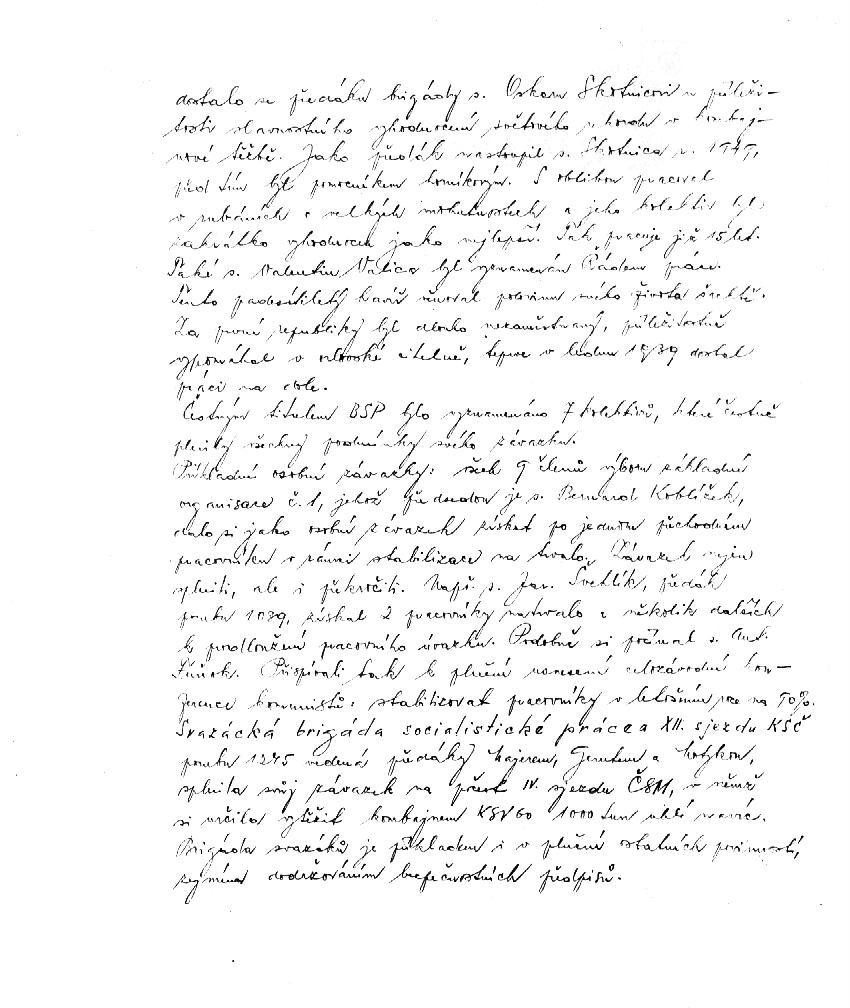 dostalo se předáku brigády s. Oskaru Skotnicovi u příleži-
tosti slavnostního vyhodnocení světového rekordu v kombaj-
nové těžbě. Jako předák nastoupil s. Skotnica r. 1949,
před tím byl pomocníkem horníkovým. S oblibou pracoval
v rubáních o velkých mohutnostech a jeho kolektiv byl
zakrátko vyhodnocen jako nejlepší. Tak pracuje již 15 let.
Také s. Valentin Valica byl vyznamenán Řádem práce.
Tento padesátiletý havíř věnoval polovinu svého života šachtě.
Za první republiky byl dlouho nezaměstnaný, příležitostně
vypomáhal v cihelně, teprve v lednu 1939 dostal
práci na dole.
Čestným titulem BSP bylo vyznamenáno 7 kolektivů, které čestně
plnily všechny podmínky svého závazku.
Příkladné osobní závazky: všech 9 členů výboru základní
organisace č. 1, jehož předsedou je s. Bernard Koblížek,
dalo si jako osobní závazek získat po jednom přechodném
pracovníku v rámci stabilizace na trvalo. Závazek nejen
splnili, ale i překročili. Např. s. Jar. Světlík, předák
porubu 1039, získal 2 pracovníky natrvalo a několik dalších
k prodloužení pracovního úvazku. Podobně si počínal s. Ant.
Přispívali tak k plnění usnesení celozávodní kon-
ference komunistů: stabilizovat pracovníky v letošním roce na 50%.
Svazácká brigáda socialistické práce a XII. sjezdu KSČ
porubu 1245 vedená předáky Majerem, a
splnila svůj závazek na počest IV. sjezdu ČSM, v němž
si určila vytěžit kombajnem KSV 60 1000 tun uhlí navíc.
Brigáda svazáků je příkladem i v plnění ostatních povinností,
zejména dodržováním bezpečnostních předpisů.